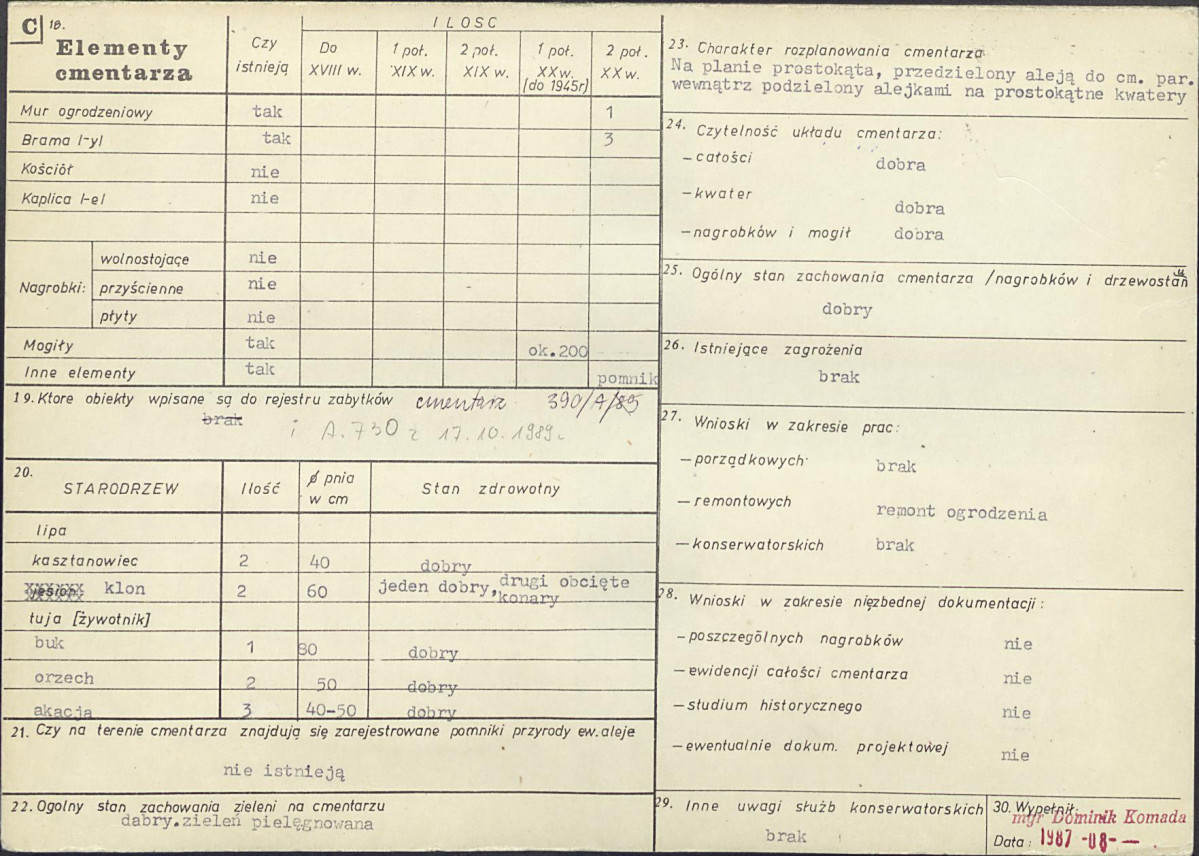 C 18.
Elementy cmentarza
Czy istnieją
ILOSC
Do XVIII w.
1 poł. XIX w.
2 poł. XIX w.
1 poł. XX w. (do 1945r)
2 poł. XX w.
Mur ogrodzeniowy tak 1
Brama /-y/ tak 3
Kościół nie
Kaplica /-e/ nie
Nagrobki: wolnostojące nie
przyścienne nie
płyty nie
Mogiły tak ok.200
Inne elementy tak pomnik
19. Ktore obiekty wpisane są do rejestru zabytków cmentarz 390/A/85
brak
i A.730 z 17.10.1989.
20.
STARODRZEW Ilość ϕ pnia w cm Stan zdrowotny
lipa
kasztanowiec 2 40 dobry
jesion klon 2 60 jeden dobry, drugi obcięte
konary
tuja [żywotnik]
buk 1 80 dobry
orzech 2 50 dobry
akacja 3 40-50 dobry
21. Czy na terenie cmentarza znajdują się zarejestrowane pomniki przyrody ew. aleje
nie istnieją
22. Ogolny stan zachowania zieleni na cmentarzu
dabry.zieleń pielęgnowana
23. Charakter rozplanowania cmentarza
Na planie prostokąta, przedzielony aleją do cm. par.
wewnątrz podzielony alejkami na prostokątne kwatery
24. Czytelność układu cmentarza:
- całości dobra
- kwater dobra
- nagrobków i mogił dobra
25. Ogólny stan zachowania cmentarza /nagrobków i drzewostan
dobry
26. Istniejące zagrożenia
brak
27. Wnioski w zakresie prac:
- porządkowych brak
- remontowych remont ogrodzenia
- konserwatorskich brak
28. Wnioski w zakresie niezbednej dokumentacji:
- poszczególnych nagrobków nie
- ewidencji całości cmentarza nie
- studium historycznego nie
- ewentualnie dokum. projektowej nie
29. Inne uwagi służb konserwatorskich
brak
30. Wypełnił:
mgr Dominik Komada
Data: 1987 -08- —.